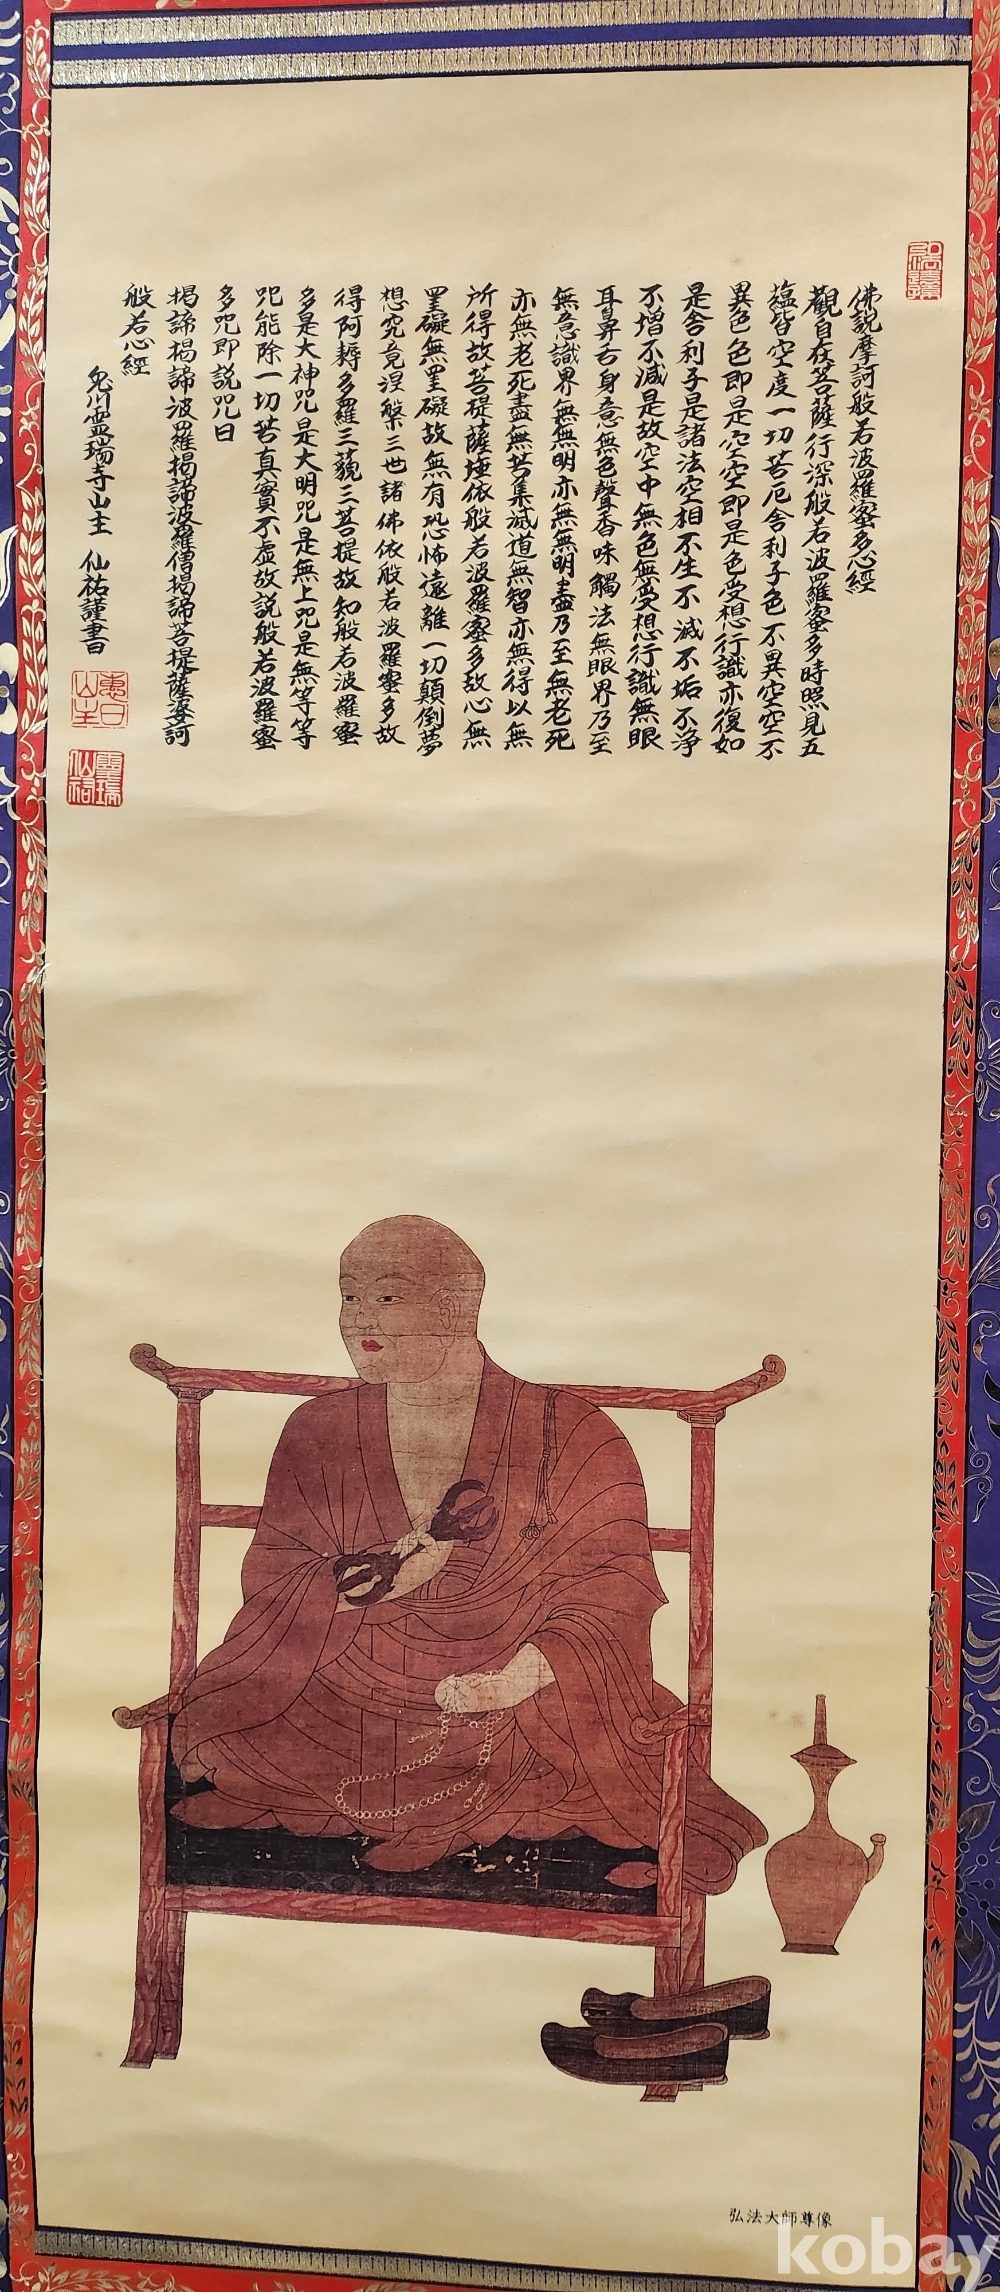 佛說摩訶般若波羅蜜多心經
觀自在菩薩行深般若波羅蜜多時照見五
蘊皆空度一切苦厄舍利子色不異空空不
異色色即是空空即是色受想行識亦復如
是舍利子是諸法空相不生不滅不垢不淨
不增不減是故空中無色無受想行識無眼
耳鼻舌身意無色聲香味觸法無眼界乃至
無意識界無無明亦無無明盡乃至無老死
亦無老死盡無苦集滅道無智亦無得以無
所得故菩提薩埵依般若波羅蜜多故心無
罣礙無罣礙故無有恐怖遠離一切顛倒夢
想究竟涅槃三世諸佛依般若波羅蜜多故
得阿耨多羅三藐三菩提故知般若波羅蜜
多是大神咒是大明咒是無上咒是無等等
咒能除一切苦真實不虛故說般若波羅蜜
多咒即說咒曰
揭諦揭諦波羅揭諦波羅僧揭諦菩提薩婆訶
般若心經
靈瑞寺山主 仙祐謹書
靈瑞
仙祐
弘法大師尊像
kobay